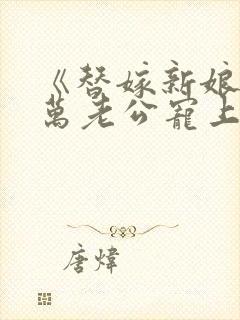 《替嫁新娘
萬老公寵上
唐煒